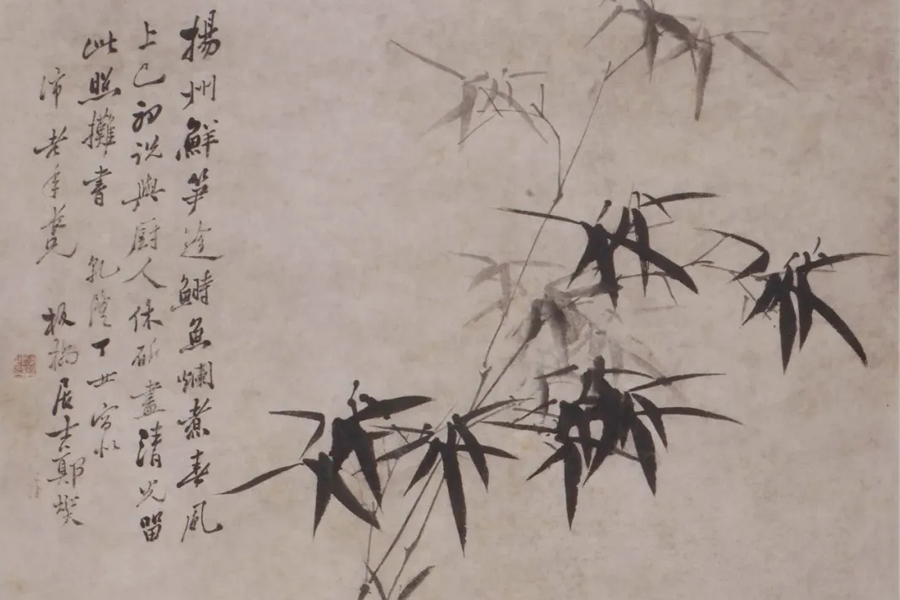 揚州鮮笋趁鰣魚爛煮春風
上巳初說與厨人休斫盡清光留
此照攤書 乾隆丁丑寫似
沛老年 板橋居士鄭燮